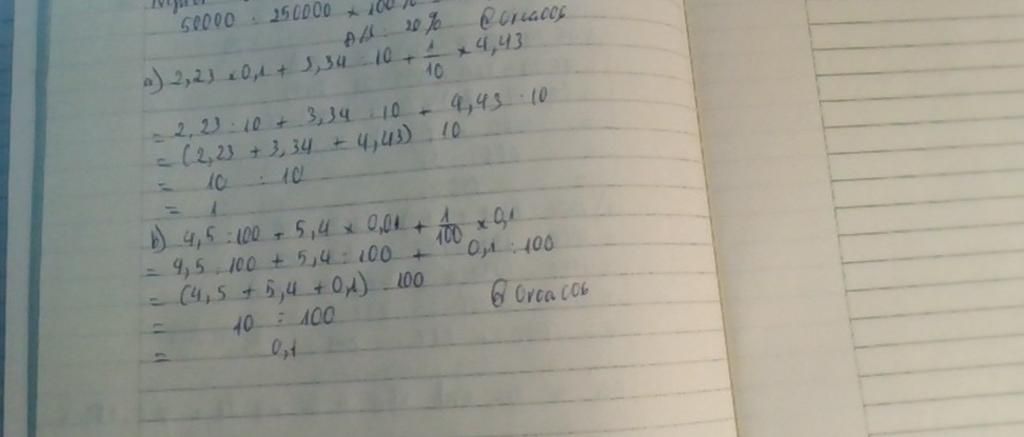 50000 : 250000 × 100%
20% @Orcacos
a) 2,23 × 0,1 + 3,34 : 10 + 1/10 × 4,43
= 2,23 : 10 + 3,34 : 10 + 4,43 : 10
= (2,23 + 3,34 + 4,43) : 10
= 10 : 10
= 1
b) 4,5 : 100 + 5,4 × 0,01 + 1/100 × 0,1
= 4,5 : 100 + 5,4 : 100 + 0,1 : 100
= (4,5 + 5,4 + 0,1) : 100
= 10 : 100
= 0,1
@Orcacos